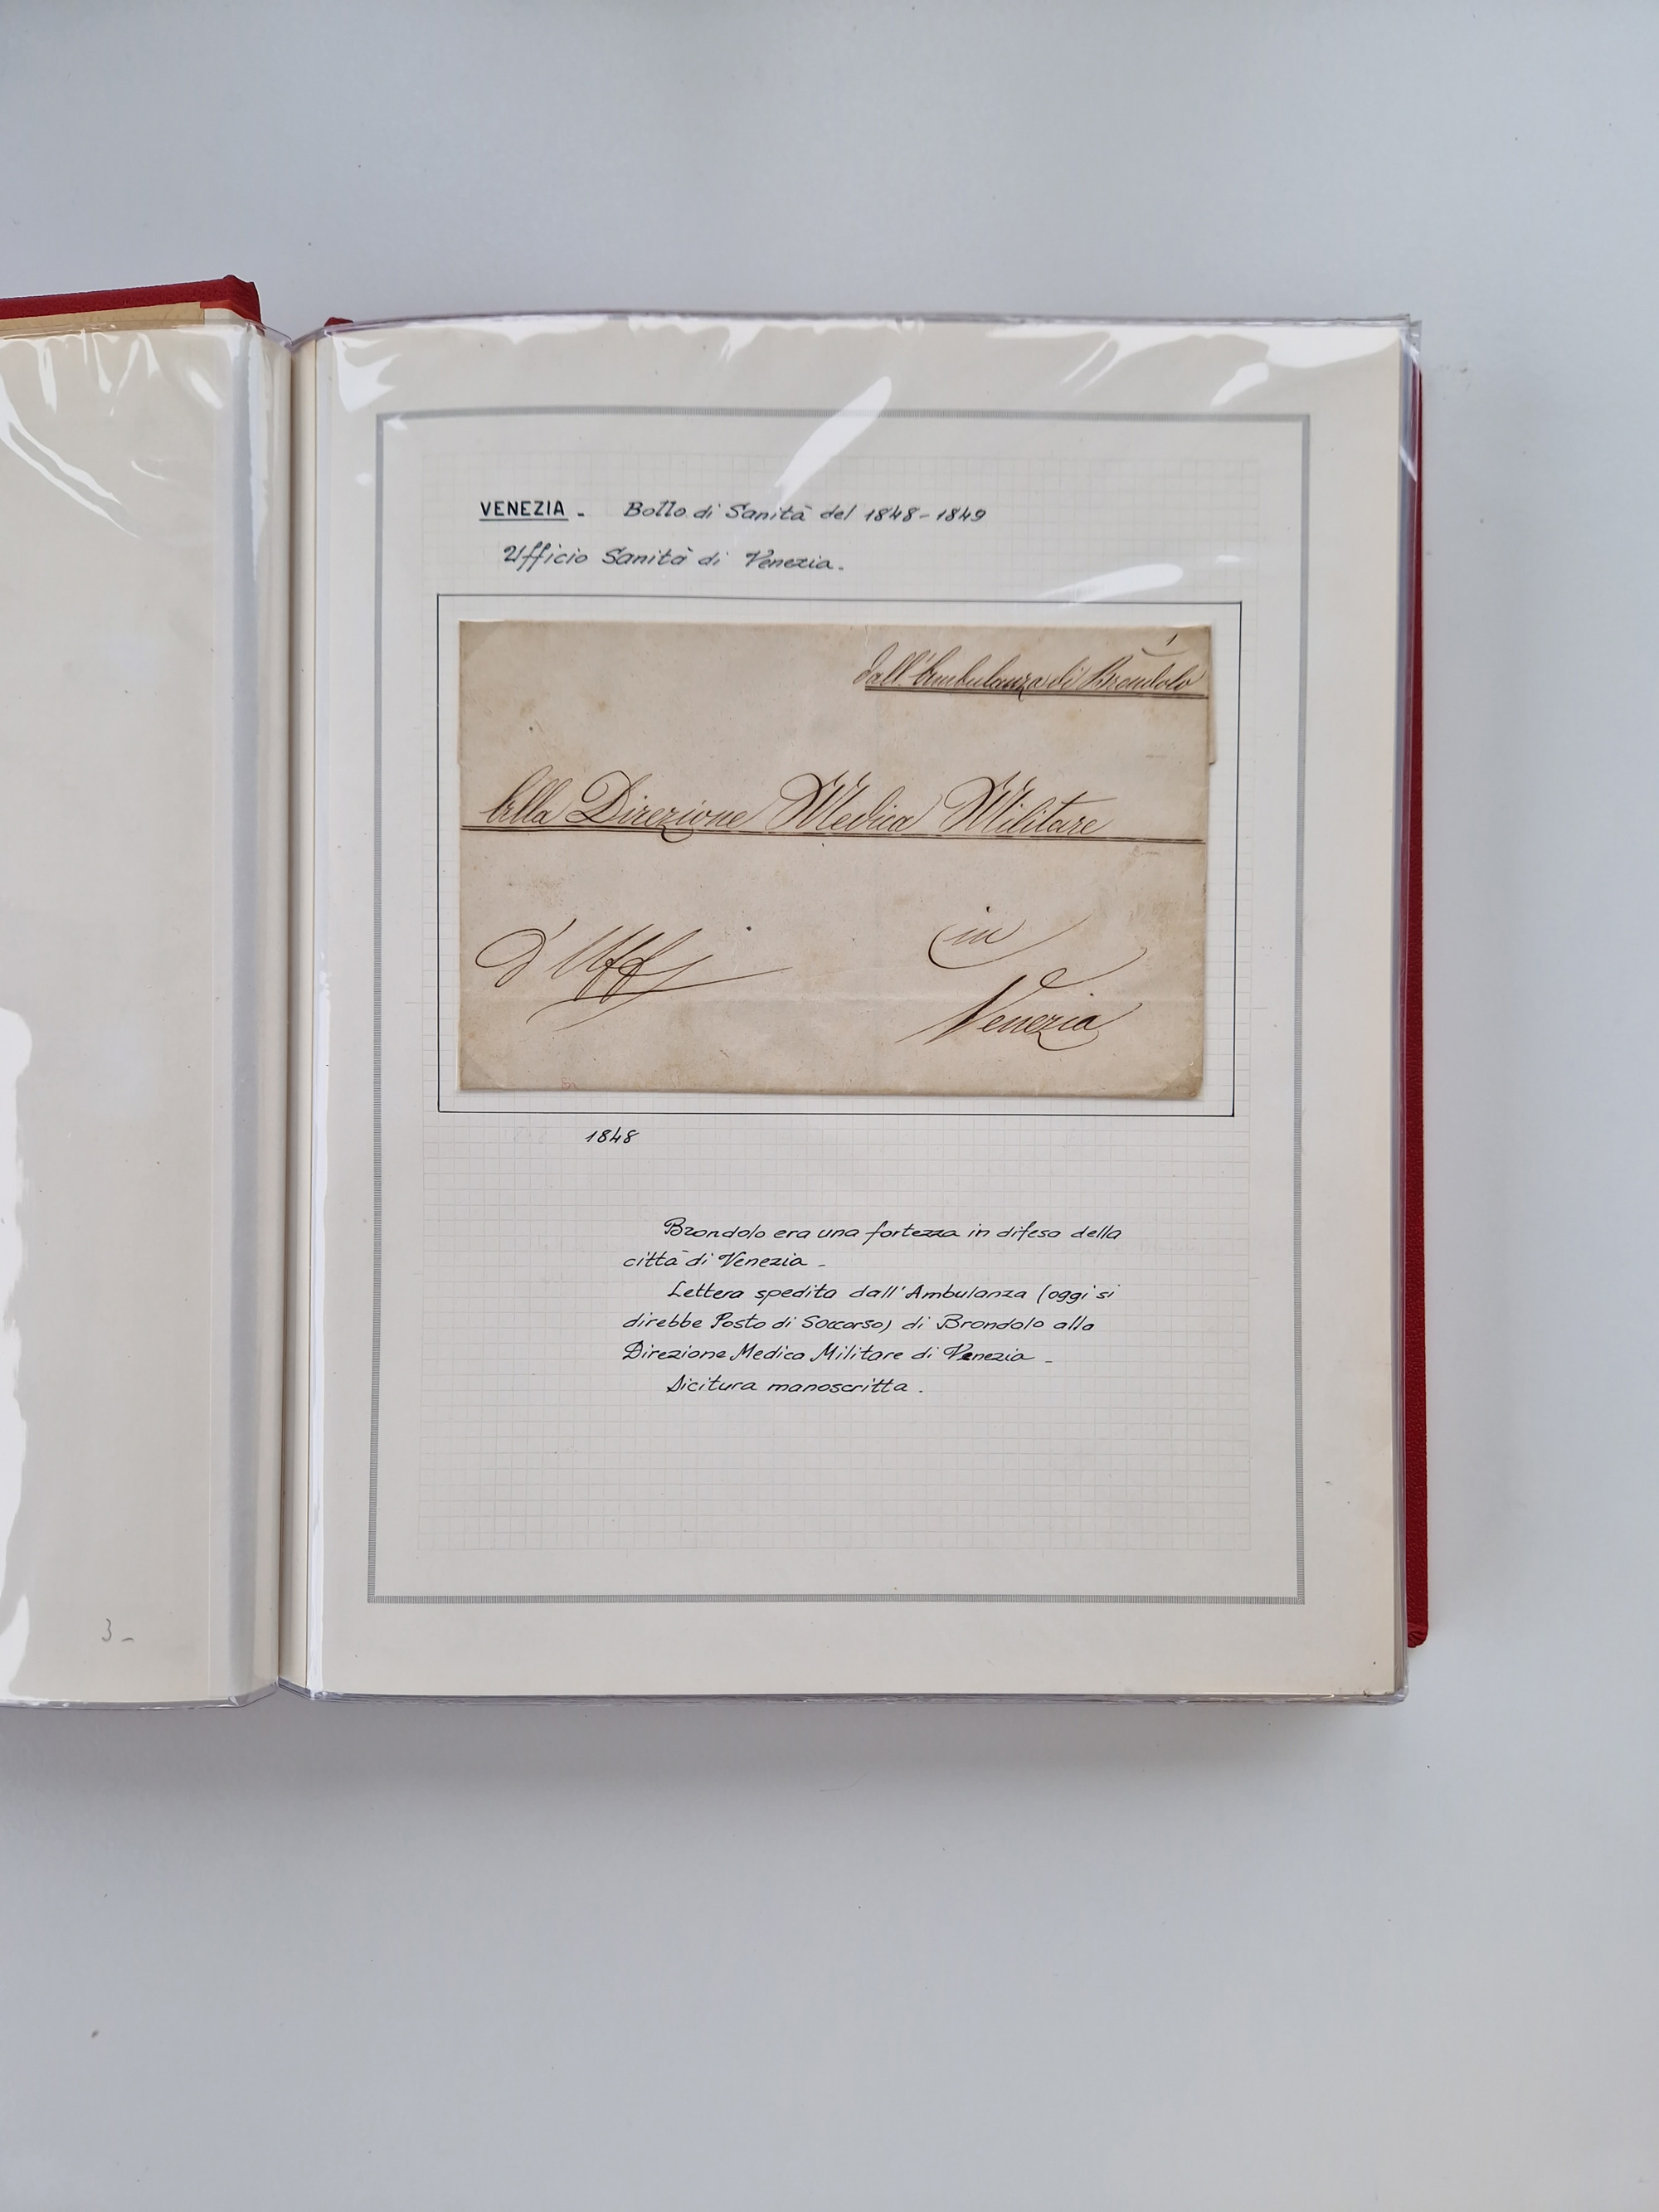 VENEZIA - Bollo di Sanità del 1848-1849
Ufficio Sanità di Venezia.
1
dall'Ambulanza di Brondolo
Alla Direzione Medica Militare
d'Uff
in
Venezia
1848
Brondolo era una fortezza in difesa della
città di Venezia -
Lettera spedita dall'Ambulanza (oggi si
direbbe Posto di Soccorso) di Brondolo alla
Direzione Medica Militare di Venezia -
Dicitura manoscritta.
3-